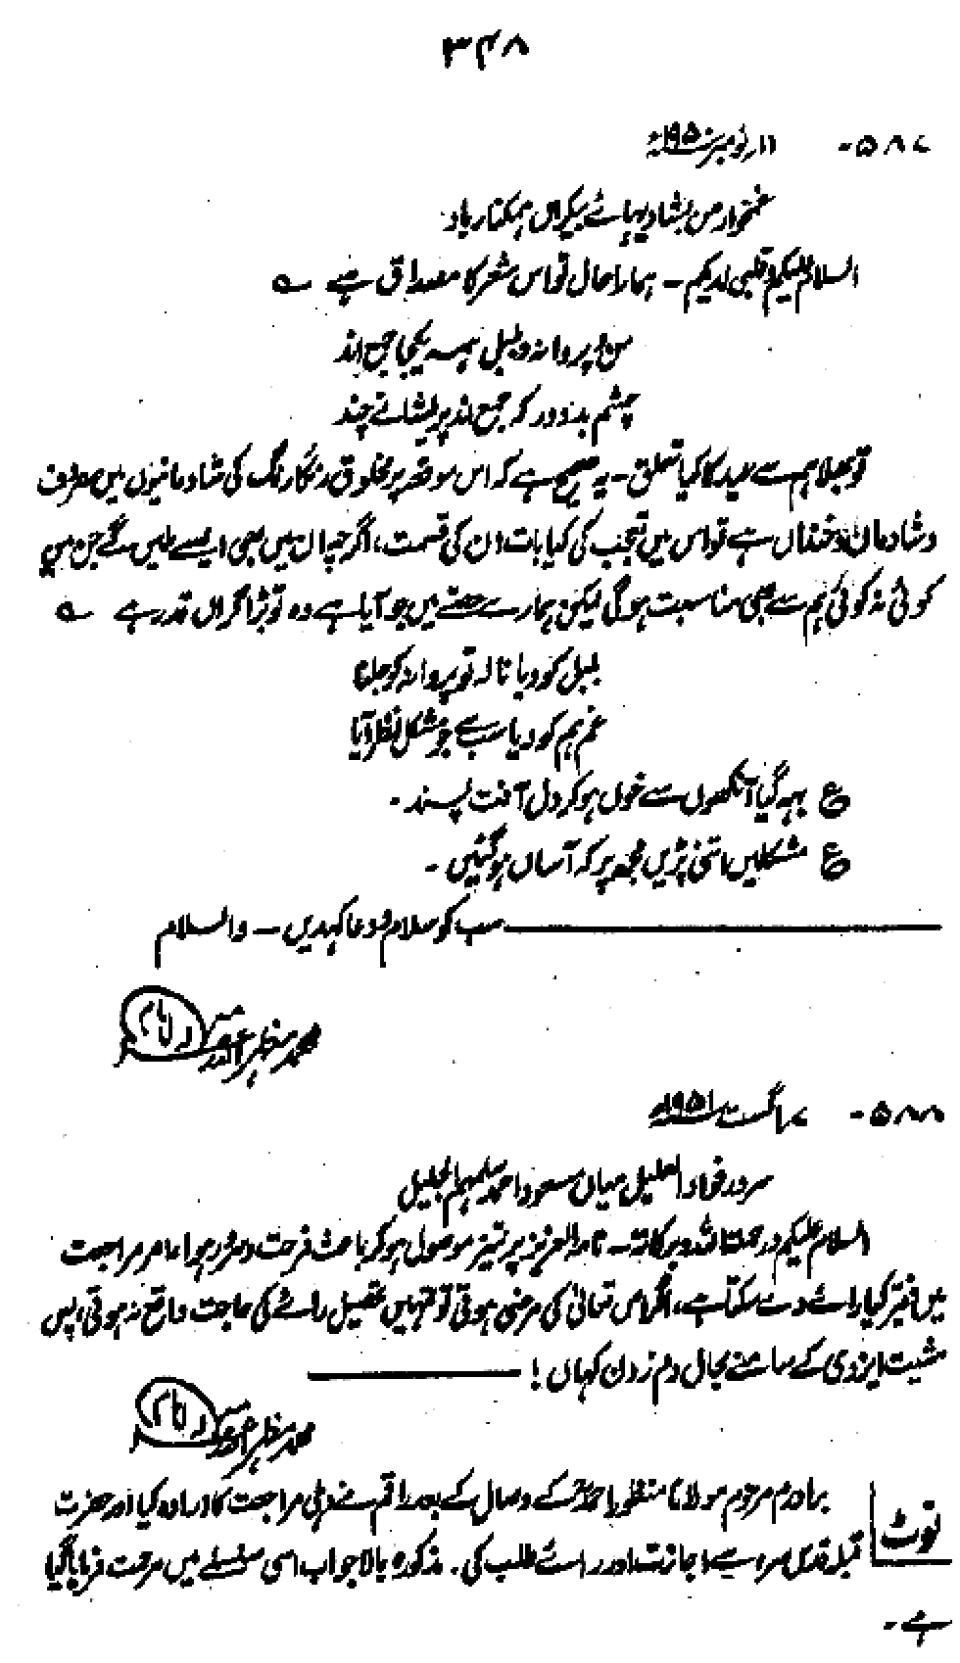 ۳۴۸
۵۸۷- ۱۱ر نومبر ۱۹۵۰ء
غمخوار من بشادیہائے بیکراں ہمکنار باد
السلام علیکم قلبی لدیکم - ہمارا حال تو اس شعر کا مصداق ہے ؎
من و پروانہ و بلبل ہمہ یکجا جمع اند
چشم بد دور کہ جمع اند پریشانے چند
تو بھلا ہم سے عید کا کیا تعلق - یہ صحیح ہے کہ اس موقعہ پر مخلوق رنگا رنگ کی شادمانیوں میں مصروف
و شادمان و خنداں ہے تو اس میں تعجب کی کیا بات ان کی قسمت، اگرچہ ان میں بھی ایسے ملیں گے جن میں
کوئی نہ کوئی ہم سے بھی مناسبت ہوگی لیکن ہمارے حصے میں جو آیا ہے وہ تو بڑا گراں قدر ہے ؎
بلبل کو دیا نالہ تو پروانہ کو جلنا
غم ہم کو دیا سب سے جو مشکل نظر آیا
ع بہہ گیا آنکھوں سے خوں ہو کر دل آفت پسند -
ع مشکلیں اتنی پڑیں مجھ پر کہ آساں ہوگئیں -
سب کو سلام و دعا کہدیں - والسلام
محمد مظہر
۵۸۸- ۷ اگست ۱۹۵۱ء
سرور فواد العلیل میاں مسعود احمد سلمہم الجلیل
السلام علیکم و رحمۃ اللہ و برکاتہ - نامہ العزیز پر تمیز موصول ہو کر باعث فرحت و سرور ہوا، امر مراجعت
میں فقیر کیا رائے دے سکتا ہے، اگر اس تعالیٰ کی مرضی ہوتی تو تمہیں تحصیل رائے کی حاجت واقع نہ ہوتی، پس
مشیت ایزدی کے سامنے مجال دم زدن کہاں !
محمد مظہر
نوٹ برادرم مرحوم مولانا منظور احمد کے وصال کے بعد راقم نے دہلی مراجعت کا ارادہ کیا اور حضرت
قبلہ قدس سرہ سے اجازت اور رائے طلب کی۔ مذکورہ بالا جواب اسی سلسلے میں مرحمت فرمایا گیا
ہے -